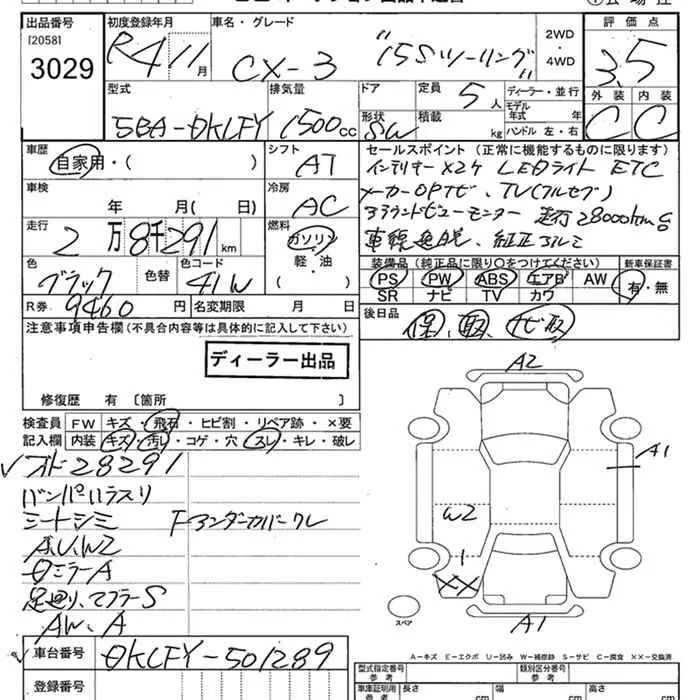 出品番号 初度登録年月 車名・グレード 2WD・4WD 評価点
[2058]
3029 R4 11月 CX-3 15Sツーリング 3.5
型式 排気量 ドア 定員 5人 ディーラー・並行 外装 内装
モデル年式 年
5BA-DKLFY 1500cc 形状 SW 積載 kg ハンドル 左・右 C C
車歴 シフト セールスポイント (正常に機能するものに限ります)
自家用・( ) AT インテリキーX2ケ LEDライト ETC
車検 冷房 メーカーOPナビ、TV(フルセグ)
年 月( 日) AC
走行 燃料
2万8千291km ガソリン 軽・油 ( ) 車線逸脱、純正アルミ
色 色替 色コード 装備品 (純正品に限り○をつけてください) 新車保証書
ブラック 41W PS PW ABS エアB AW 有・無
SR ナビ TV カワ
R券 9460円 名変期限 月 日 後日品
注意事項申告欄(不具合内容等は具体的に記入して下さい) 保、取、ナビ取
ディーラー出品
修復歴 有 〔箇所 〕
A2
検査員 FW キズ・飛石・ヒビ割・リペア跡・×要
記入欄 内装 キズ・汚レ・コゲ・穴・スレ・キレ・破レ
A1
28291
シートシミ Fアンダーカバークレ
A.U.W2
W2
ミラーA
足廻り、マフラーS
XX
AW、A
A1
スペア
車台番号 DKLFY-501289
登録番号
A-キズ E-エクボ U-凹み W-補修跡 S-サビ C-腐食 XX-交換済
型式指定番号 参考 類別区分番号 参考
車庫証明用 参考 長さ cm 幅 cm 高さ cm